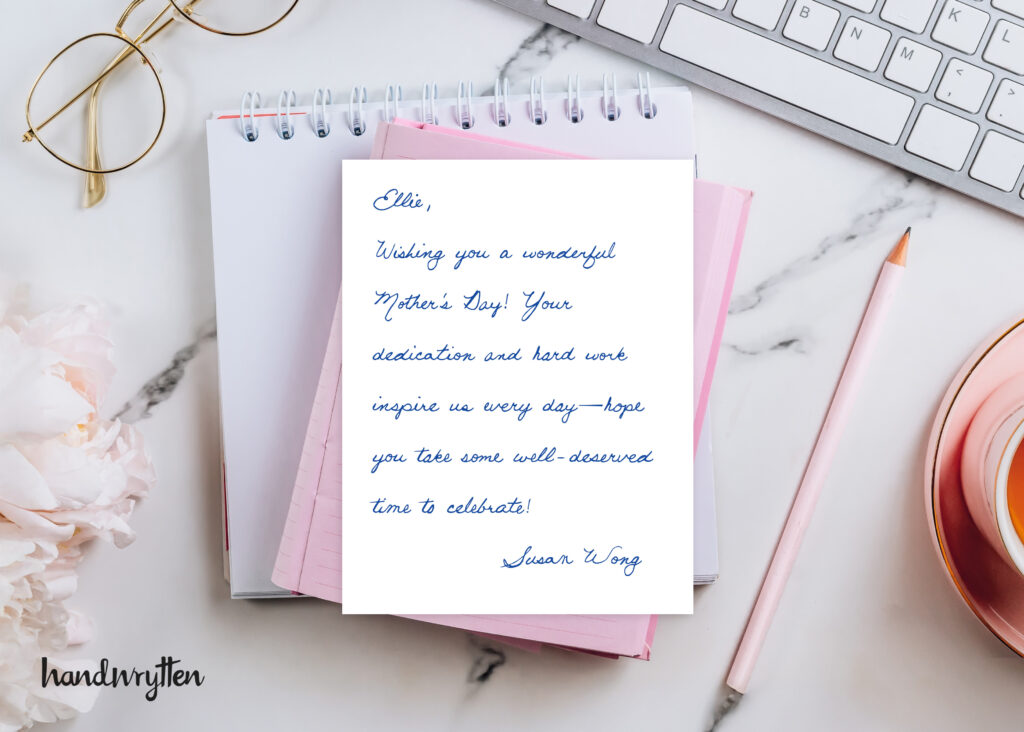 B
N
M
K
L
< ,
>
Ellie,
Wishing you a wonderful
Mother's Day! Your
dedication and hard work
inspire us every day—hope
you take some well-deserved
time to celebrate!
Susan Wong
handwrytten